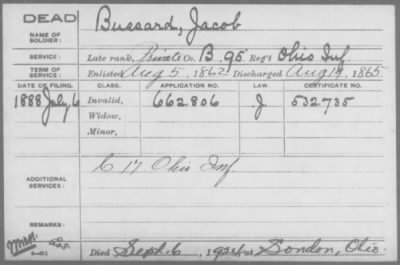 DEAD
NAME OF SOLDIER: Bussard, Jacob
SERVICE: Late rank, Private Co. B. 95 Reg't Ohio Inf.
TERM OF SERVICE: Enlisted Aug 5, 1862 Discharged Aug 14, 1865
DATE OF FILING. CLASS. APPLICATION NO. LAW. CERTIFICATE NO.
1888 July, 6 Invalid, 662.806 J 532.735
Widow,
Minor,
ADDITIONAL SERVICES: C 17 Ohio Inf.
REMARKS:
Died Sept. 6, at London, Ohio.